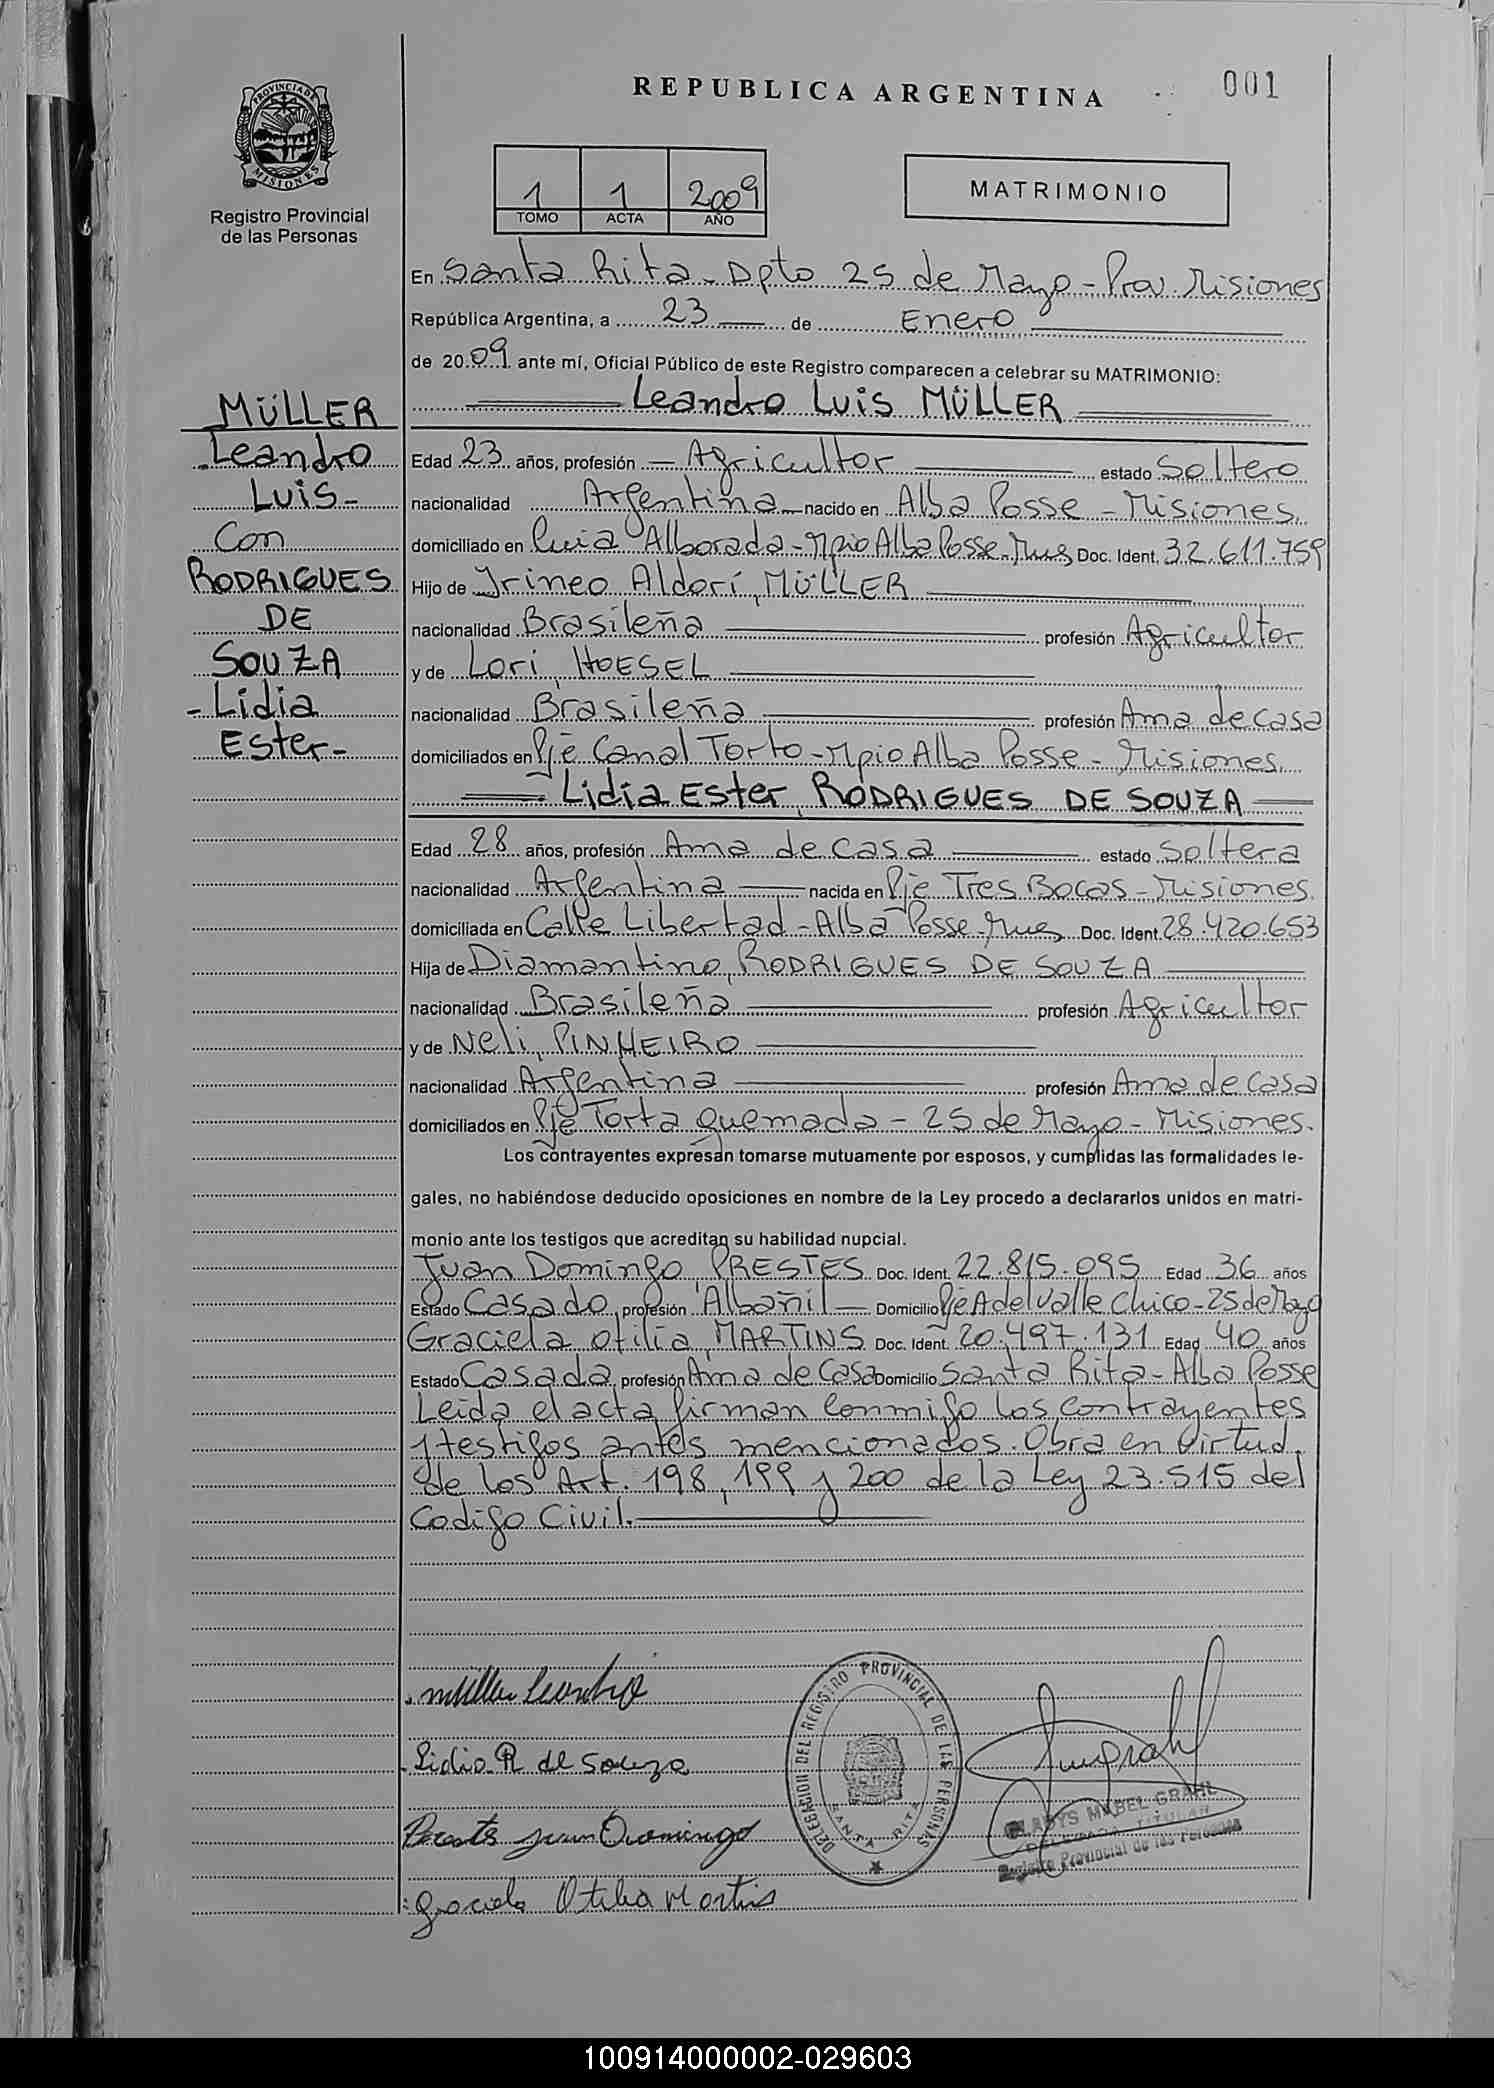 REPUBLICA ARGENTINA
001
PROVINCIA DE MISIONES
Registro Provincial
de las Personas
1 1 2009
TOMO ACTA AÑO
MATRIMONIO
En Santa Rita - Dpto 25 de Mayo - Prov Misiones
República Argentina, a 23 de Enero
de 2009 ante mí, Oficial Público de este Registro comparecen a celebrar su MATRIMONIO:
Leandro Luis MÜLLER
MÜLLER
Leandro
Luis -
Con
RODRIGUES
DE
SOUZA
- Lidia
Ester -
Edad 23 años, profesión Agricultor estado Soltero
nacionalidad Argentina nacido en Alba Posse - Misiones.
domiciliado en Alborada - Mpio Alba Posse - Mnes Doc. Ident. 32.611.759
Hijo de Irineo Aldori, MÜLLER
nacionalidad Brasileña profesión Agricultor
y de Lori, HOESEL
nacionalidad Brasileña profesión Ama de casa
domiciliados en Pje Canal Torto - Mpio Alba Posse - Misiones.
Lidia Ester, RODRIGUES DE SOUZA
Edad 28 años, profesión Ama de casa estado Soltera
nacionalidad Argentina nacida en Pje Tres Bocas - Misiones.
domiciliada en Calle Libertad - Alba Posse - Mnes Doc. Ident. 28.420.653
Hija de Diamantino, RODRIGUES DE SOUZA
nacionalidad Brasileña profesión Agricultor
y de Neli, PINHEIRO
nacionalidad Argentina profesión Ama de casa
domiciliados en Pje Torta Quemada - 25 de Mayo - Misiones.
Los contrayentes expresan tomarse mutuamente por esposos, y cumplidas las formalidades le-
gales, no habiéndose deducido oposiciones en nombre de la Ley procedo a declararlos unidos en matri-
monio ante los testigos que acreditan su habilidad nupcial.
Juan Domingo, PRESTES Doc. Ident. 22.815.095 Edad 36 años
Estado Casado, profesión Albañil Domicilio Pje A del Valle Chico - 25 de Mayo
Graciela Otilia, MARTINS Doc. Ident. 20.497.131 Edad 40 años
Estado Casada, profesión Ama de Casa Domicilio Santa Rita - Alba Posse
Leida el acta, firman conmigo los contrayentes
y testigos antes mencionados. Obra en virtud
de los Art. 198, 199 y 200 de la Ley 23.515 del
Codigo Civil.
Müller Leandro
Lidia R de Souza
Prestes Juan Domingo
Graciela Otilia Martins
DELEGACION DEL REGISTRO PROVINCIAL DE LAS PERSONAS
SANTA RITA
GLADYS MABEL GRAHL
DELEGADA TITULAR
Registro Provincial de las Personas
100914000002-029603